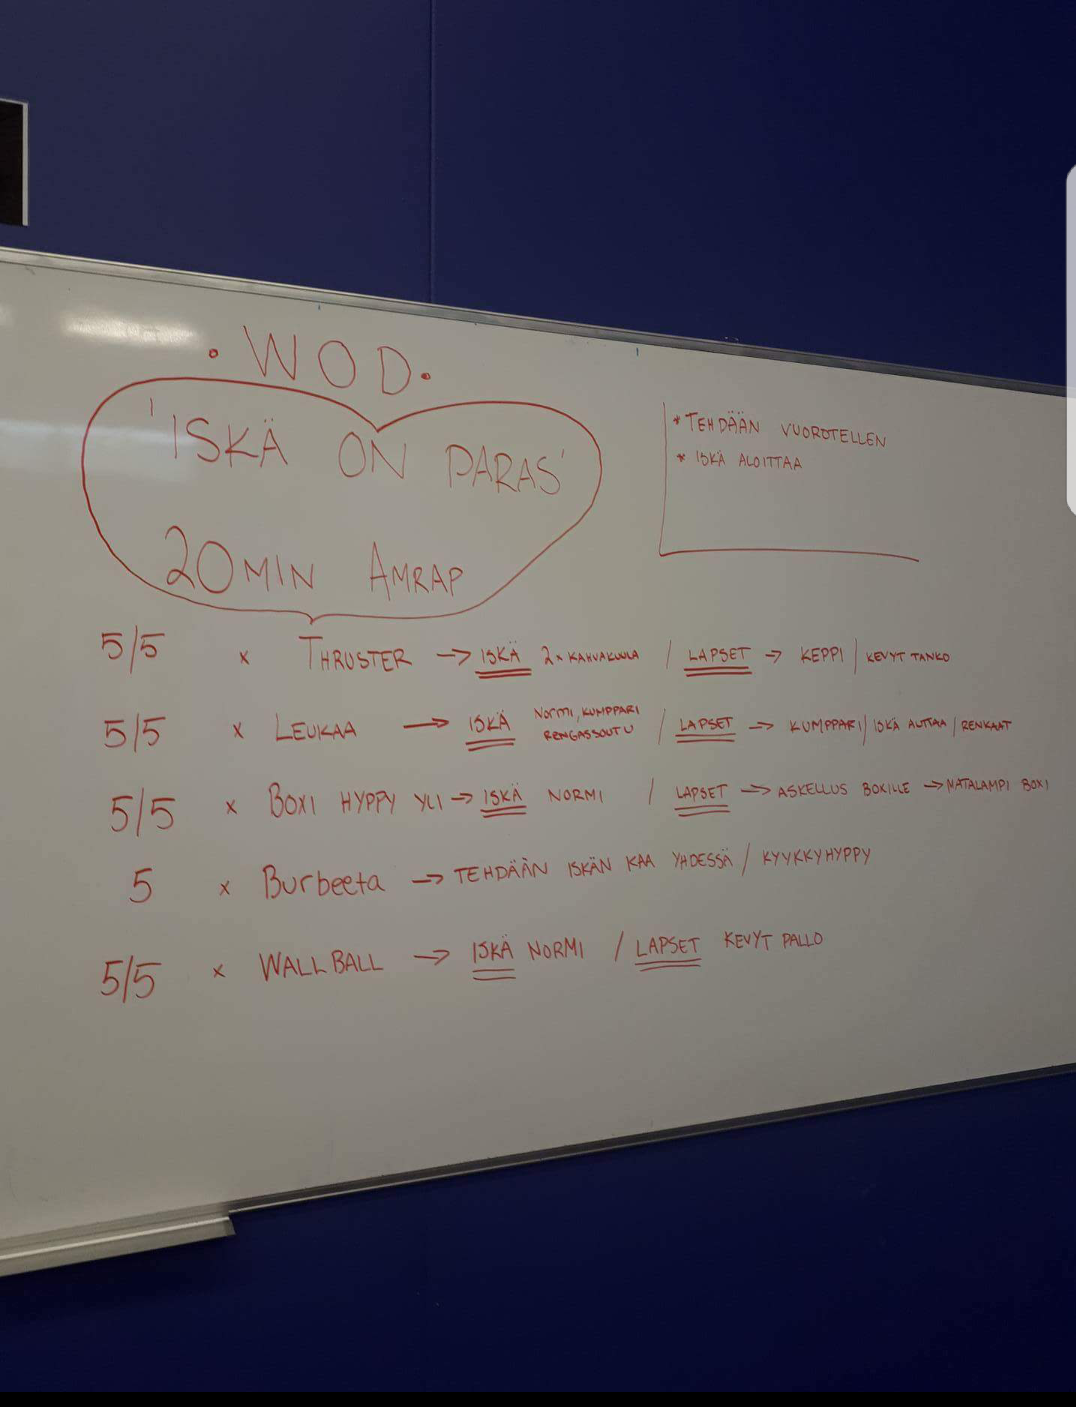 • WOD •
'ISKÄ ON PARAS'
20MIN AMRAP
* TEHDÄÄN VUOROTELLEN
* ISKÄ ALOITTAA
5/5 x THRUSTER → ISKÄ 2x KAHVAKUULA / LAPSET → KEPPI / KEVYT TANKO
5/5 x LEUKAA → ISKÄ NORMI, KUMPPARI RENGASSOUTU / LAPSET → KUMPPARI / ISKÄ AUTTAA / RENKAAT
5/5 x BOXI HYPPY YLI → ISKÄ NORMI / LAPSET → ASKELLUS BOXILLE → MATALAMPI BOXI
5 x Burbeeta → TEHDÄÄN ISKÄN KAA YHDESSÄ / KYYKKYHYPPY
5/5 x WALLBALL → ISKÄ NORMI / LAPSET KEVYT PALLO